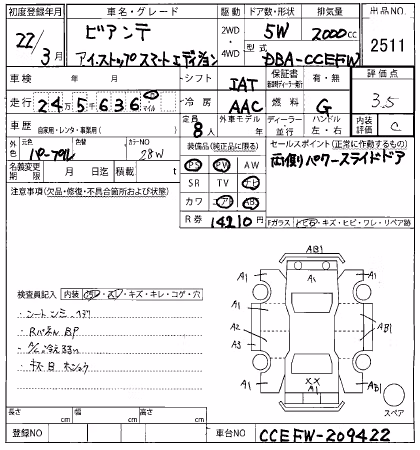 初度登録年月 車名・グレード 駆動 ドア数・形状 排気量 出品NO.
22/3月 ビアンテ 2WD 5W 2000cc 2511
アイ・ストップ スマートエディション 4WD 型式 DBA-CCEFW
車検 年 月 シフト IAT 保証書 有・無 評価点
走行 245636 マイル 冷房 AAC 燃料 G 3.5
車歴 自家用・レンタ・事業用( ) 定員 8人 外車モデル 年 ディーラー 並行 ハンドル 左・右 内装評価 C
外色 元色 パープル 色替 カラーNO 28W 装備品(純正品に限る) セールスポイント(正常に作動するもの)
名義変更期限 月 日迄 積載 t PS PV AW 両側パワースライドドア
注意事項(欠品・修復・不具合箇所および状態) SR TV ナビ
カワ エアB ABS
R券 14210円 Fガラス トビ石・キズ・ヒビ・ワレ・リペア跡
AB1
A1 A1 A1
検査員記入 内装 ・キズ・キレ・コゲ・穴
A1 A1
A2 AB1
A3
A/C冷え
A1 XX A1 AB1
スペア
長さ cm 幅 cm 高さ cm
登録NO 車台NO CCEFW-209422